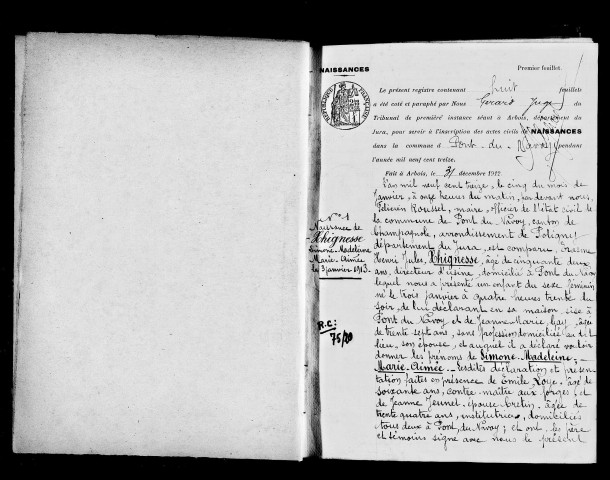 NAISSANCES
Premier feuillet.
Le présent registre contenant huit feuillets
a été coté et paraphé par Nous Gérard Juge du
Tribunal de première instance séant à Arbois, département du
Jura, pour servir à l'inscription des actes civils de NAISSANCES
dans la commune d Pont-du-Navoy pendant
l'année mil neuf cent treize.
Fait à Arbois, le 31 décembre 1912.
N° 1
Naissance de
Phignesse
Simone-Madeleine
Marie-Aimée
le 3 janvier 1913.
R.C:
75/20
L'an mil neuf cent treize, le cinq du mois de
Janvier, à onze heures du matin, par devant nous,
Roussel, maire, officier de l'état civil de
la commune de Pont du Navoy, canton de
Champagnole, arrondissement de Poligny
département du Jura, est comparu, Erasme
Henri Jules, Phignesse, âgé de cinquante deux
ans, directeur d'usine, domicilié à Pont du Navoy
lequel nous a présenté un enfant du sexe féminin
né le trois janvier à quatre heures trente du
soir, de lui déclarant en sa maison, sise à
Pont du Navoy et de Jeanne-Marie Gay, âgée
de trente sept ans, sans profession domiciliée au dit
lieu, son épouse, et auquel il a déclaré vouloir
donner les prénoms de Simone-Madeleine-
Marie-Aimée. Lesdites déclaration et présen-
tation faites en présence de Emile Roye, âgé de
soixante ans, contre-maître aux forges; et
de Jeanne Jeunet, épouse Cretin, âgée de
trente quatre ans, institutrice, domiciliés
tous deux à Pont du Navoy; et ont, les père
et témoins signé avec nous le présent